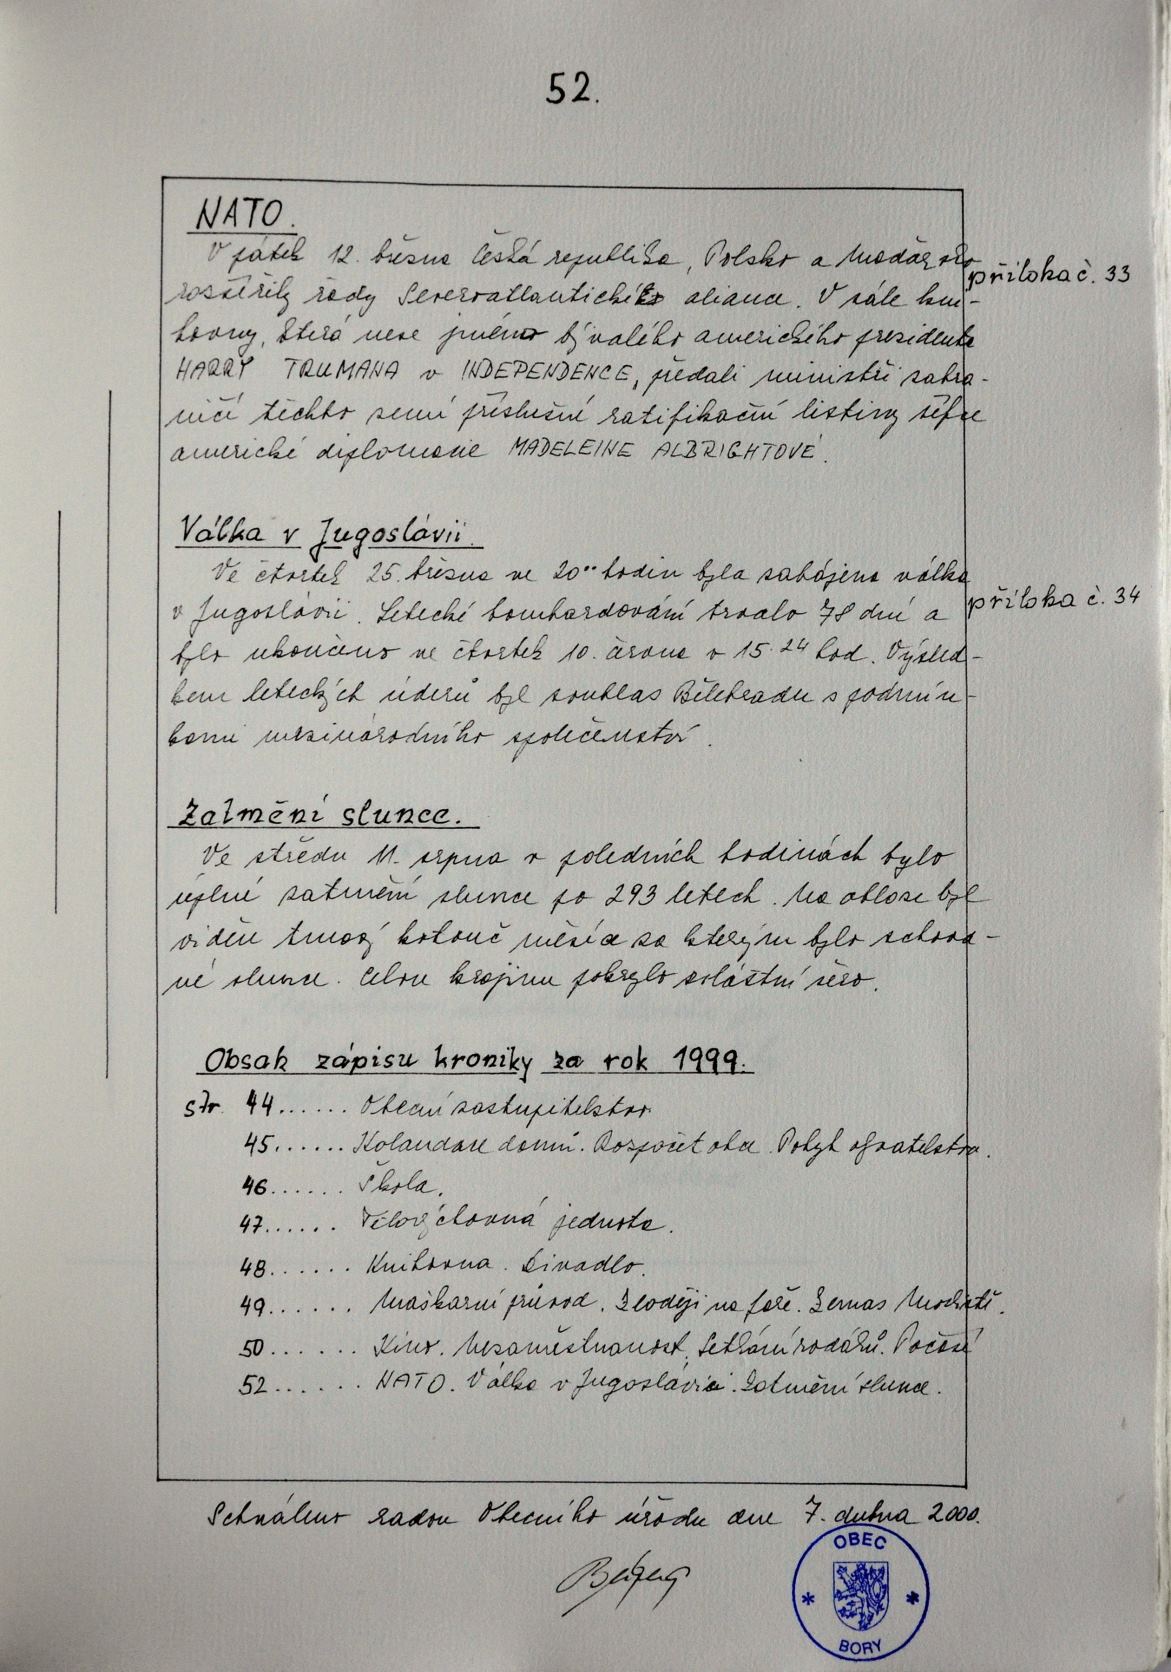 52.
NATO.
V pátek 12. března Česká republika, Polsko a Maďarsko
příloha č. 33
rozšířily řady Severoatlantické aliance. V sále kni-
hovny, která nese jméno bývalého amerického presidenta
HARRY TRUMANA v INDEPENDENCE, předali ministři zahra-
ničí těchto zemí příslušné ratifikační listiny šéfce
americké diplomacie MADELEINE ALBRIGHTOVÉ.
Válka v Jugoslávii.
Ve čtvrtek 25. března ve 20⁰⁰ hodin byla zahájena válka
v Jugoslávii. Letecké bombardování trvalo 78 dní a
příloha č. 34
bylo ukončeno ve čtvrtek 10. června v 15.24 hod. Výsled-
kem leteckých úderů byl souhlas Bělehradu s podmín-
kami mezinárodního společenství.
Zatmění slunce.
Ve středu 11. srpna v poledních hodinách bylo
úplné zatmění slunce po 293 letech. Na obloze byl
viděn tmavý kotouč měsíce za kterým bylo schova-
né slunce. Celou krajinu pokrylo zvláštní šero.
Obsah zápisu kroniky za rok 1999.
str. 44...... Obecní zastupitelstvo.
45...... Kolaudace domů. Rozpočet obce. Pohyb obyvatelstva.
46...... Škola.
47...... Tělovýchovná jednota.
48...... Knihovna. Divadlo.
49...... Maškarní průvod. Zloději na faře.
50...... Kino. Nezaměstnanost. Setkání rodáků. Počasí
52...... NATO. Válka v Jugoslávii. Zatmění slunce.
Schváleno radou Obecního úřadu dne 7. dubna 2000.
OBEC
BORY